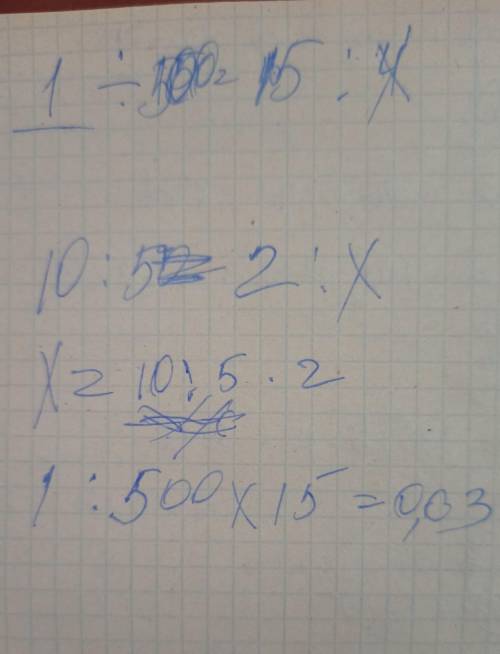 1 ÷ 500 = 15 : X
10 : 5 = 2 : X
X = 10 : 5 · 2
1 : 500 x 15 = 0,03